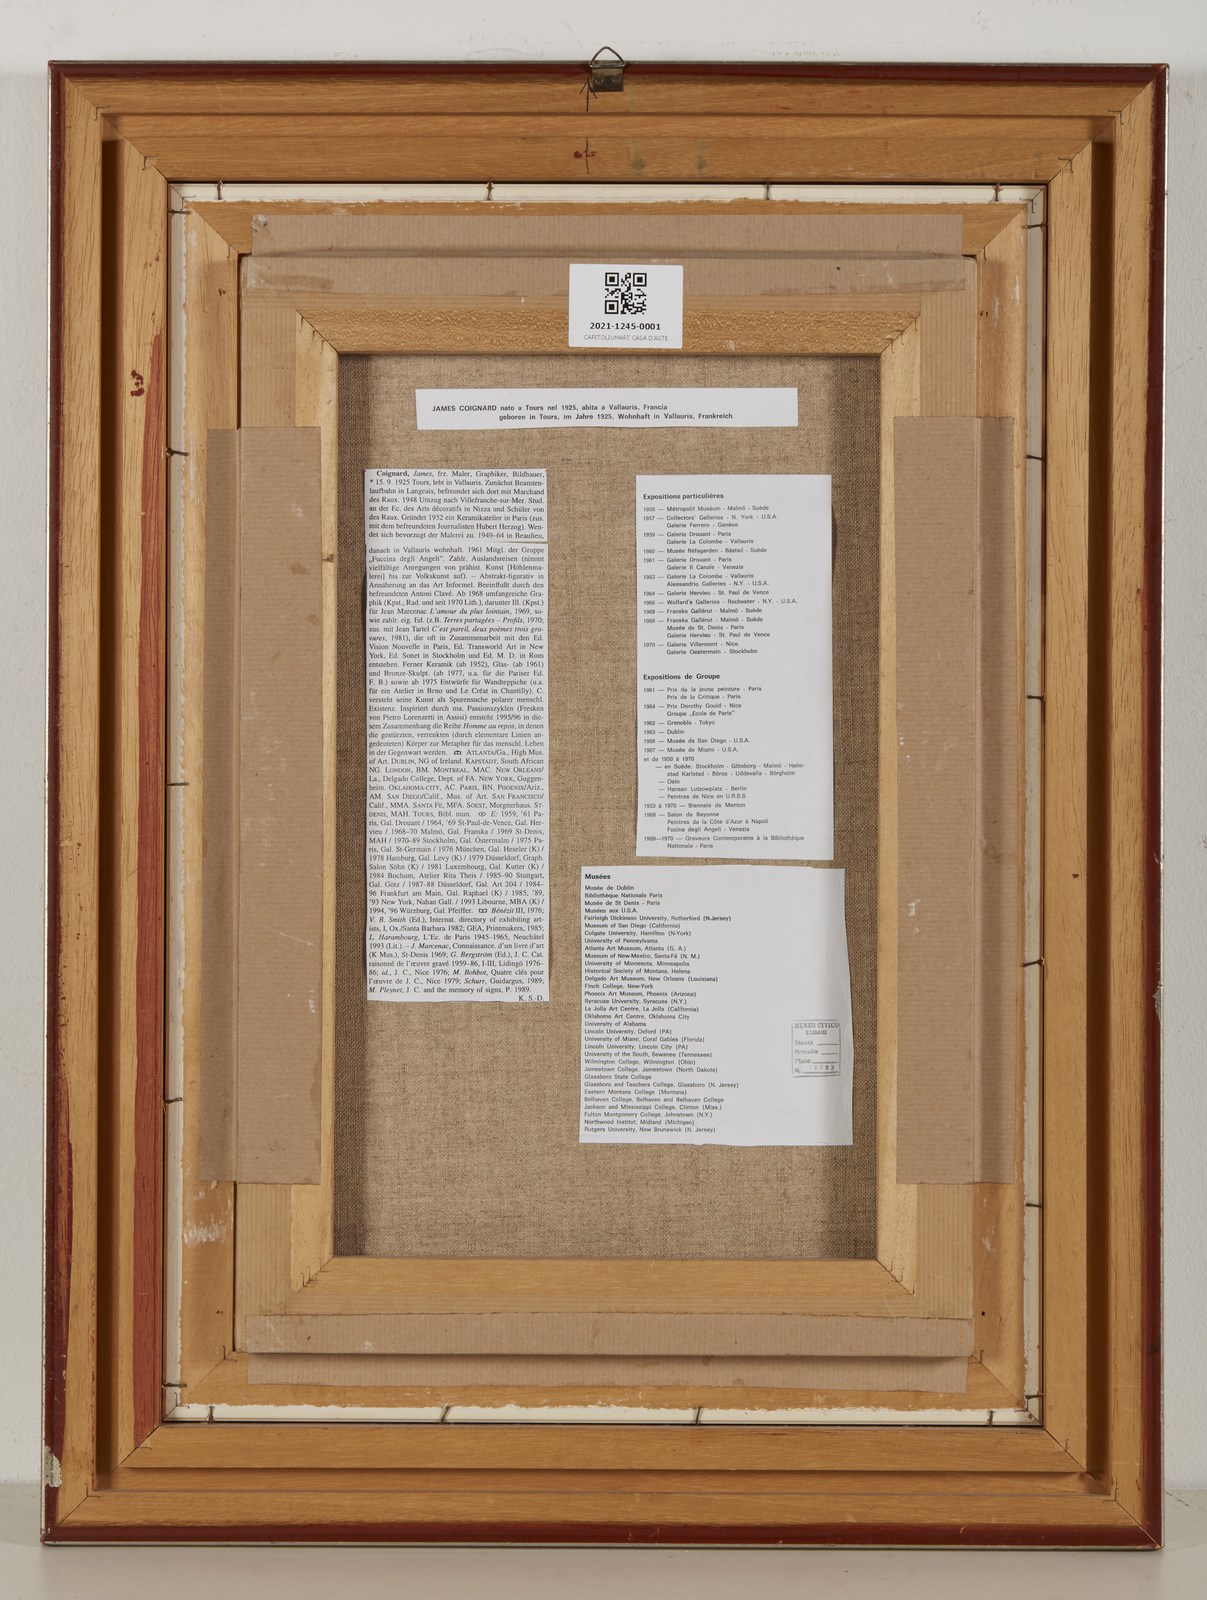 2021-1245-0001
CAPITOLIUMART CASA D'ASTE
JAMES COIGNARD nato a Tours nel 1925, abita a Vallauris, Francia
geboren in Tours, im Jahre 1925, Wohnhaft in Vallauris, Frankreich
Coignard, James, frz. Maler, Graphiker, Bildhauer,
* 15. 9. 1925 Tours, lebt in Vallauris. Zunächst Beamten-
laufbahn in Langeais, befreundet sich dort mit Marchand
des Raux. 1948 Umzug nach Villefranche-sur-Mer. Stud.
an der Ec. des Arts décoratifs in Nizza und Schüler von
des Raux. Gründet 1952 ein Keramikatelier in Paris (zus.
mit dem befreundeten Journalisten Hubert Herzog). Wen-
det sich bevorzugt der Malerei zu. 1949-64 in Beaulieu,
danach in Vallauris wohnhaft. 1961 Mitgl. der Gruppe
„Fuccina degli Angeli". Zahlr. Auslandsreisen (nimmt
vielfältige Anregungen von prähist. Kunst [Höhlenma-
lerei] bis zur Volkskunst auf). – Abstrakt-figurativ in
Annäherung an das Art Informel. Beeinflußt durch den
befreundeten Antoni Clavé. Ab 1968 umfangreiche Gra-
phik (Kpst., Rad. und seit 1970 Lith.), darunter Ill. (Kpst.)
für Jean Marcenac L'amour du plus lointain, 1969, so-
wie zahlr. eig. Ed. (z.B. Terres partagées – Profils, 1970;
zus. mit Jean Tartel C'est pareil, deux poèmes trois gra-
vures, 1981), die oft in Zusammenarbeit mit den Ed.
Vision Nouvelle in Paris, Ed. Transworld Art in New
York, Ed. Sonet in Stockholm und Ed. M. D. in Rom
entstehen. Ferner Keramik (ab 1952), Glas- (ab 1961)
und Bronze-Skulpt. (ab 1977, u.a. für die Pariser Ed.
F. B.) sowie ab 1975 Entwürfe für Wandteppiche (u.a.
für ein Atelier in Brno und Le Créat in Chantilly). C.
versteht seine Kunst als Spurensuche polarer menschl.
Existenz. Inspiriert durch ma. Passionszyklen (Fresken
von Pietro Lorenzetti in Assisi) entsteht 1995/96 in die-
sem Zusammenhang die Reihe Homme au repos, in denen
die gestürzten, verrenkten (durch elementare Linien an-
gedeuteten) Körper zur Metapher für das menschl. Leben
in der Gegenwart werden. ATLANTA/Ga., High Mus.
of Art. DUBLIN, NG of Ireland. KAPSTADT, South African
NG. LONDON, BM. MONTREAL, MAC. NEW ORLEANS/
La., Delgado College, Dept. of FA. NEW YORK, Guggen-
heim. OKLAHOMA-CITY, AC. PARIS, BN. PHOENIX/Ariz.,
AM. SAN DIEGO/Calif., Mus. of Art. SAN FRANCISCO/
Calif., MMA. SANTA FE, MFA. SOEST, Morgnerhaus. ST-
DENIS, MAH. TOURS, Bibl. mun. E: 1959, '61 Pa-
ris, Gal. Drouant / 1964, '69 St-Paul-de-Vence, Gal. Her-
vieu / 1968-70 Malmö, Gal. Franska / 1969 St-Denis,
MAH / 1970-89 Stockholm, Gal. Ostermalm / 1975 Pa-
ris, Gal. St-Germain / 1976 München, Gal. Heseler (K) /
1978 Hamburg, Gal. Levy (K) / 1979 Düsseldorf, Graph.
Salon Söhn (K) / 1981 Luxembourg, Gal. Kutter (K) /
1984 Bochum, Atelier Rita Theis / 1985-90 Stuttgart,
Gal. Götz / 1987-88 Düsseldorf, Gal. Art 204 / 1984-
96 Frankfurt am Main, Gal. Raphael (K) / 1985, '89,
'93 New York, Nahan Gall. / 1993 Libourne, MBA (K) /
1994, '96 Würzburg, Gal. Pfeiffer. Bénézit III, 1976;
V. B. Smith (Ed.), Internat. directory of exhibiting art-
ists, I, Ox./Santa Barbara 1982; GEA, Printmakers, 1985;
L. Harambourg, L'Ec. de Paris 1945-1965, Neuchâtel
1993 (Lit.). – J. Marcenac, Connaissance. d'un livre d'art
(K Mus.), St-Denis 1969; G. Bergström (Ed.), J. C. Cat.
raisonné de l'œuvre gravé 1959-86, I-III, Lidingö 1976-
86; id., J. C., Nice 1976; M. Bohbot, Quatre clés pour
l'œuvre de J. C., Nice 1979; Schurr, Guidargus, 1989;
M. Pleynet, J. C. and the memory of signs, P. 1989.
K. S.-D.
Expositions particulières
1956 — Métropolit Muséum - Malmö - Suède
1957 — Collectors' Galleries - N. York - U.S.A.
Galerie Ferrero - Genève
1959 — Galerie Drouant - Paris
Galerie La Colombe - Vallauris
1960 — Musée Réfagarden - Bâstad - Suède
1961 — Galerie Drouant - Paris
Galerie Il Canale - Venezia
1963 — Galerie La Colombe - Vallauris
Alessandrio Galleries - N.Y. - U.S.A.
1964 — Galerie Hervieu - St. Paul de Vence
1966 — Wolfard's Galleries - Rochester - N.Y. - U.S.A.
1968 — Franska Gallérut - Malmö - Suède
1969 — Franska Gallérut - Malmö - Suède
Musée de St. Denis - Paris
Galerie Hervieu - St. Paul de Vence
1970 — Galerie Villermont - Nice
Galerie Oestermain - Stockholm
Expositions de Groupe
1961 — Prix de la jeune peinture - Paris
Prix de la Critique - Paris
1964 — Prix Dorothy Gould - Nice
Groupe „Ecole de Paris"
1962 — Grenoble - Tokyo
1963 — Dublin
1966 — Musée de San Diego - U.S.A.
1967 — Musée de Miami - U.S.A.
et de 1950 à 1970
— en Suède: Stockholm - Göteborg - Malmö - Halm
stad Karlstad - Böros - Uddevalla - Börgholm
— Oslo
— Hansan Lutzowplatz - Berlin
— Peintres de Nice en U.R.S.S.
1953 à 1970 — Biennale de Menton
1969 — Salon de Bayonne
Peintres de la Côte d'Azur à Napoli
Fucina degli Angeli - Venezia
1969—1970 — Graveurs Contemporains à la Bibliothèque
Nationale - Paris
Musées
Musée de Dublin
Bibliothèque Nationale Paris
Musée de St Denis - Paris
Musées aux U.S.A.
Fairleigh Dickinson University, Rutherford (N-Jersey)
Museum of San Diego (California)
Colgate University, Hamilton (N-York)
University of Pennsylvania
Atlanta Art Museum, Atlanta (G. A.)
Museum of New-Mexico, Santa-Fé (N. M.)
University of Minnesota, Minneapolis
Historical Society of Montana, Helena
Delgado Art Museum, New Orleans (Louisiana)
Finch College, New-York
Phoenix Art Museum, Phoenix (Arizona)
Syracuse University, Syracuse (N.Y.)
La Jolla Art Centre, La Jolla (California)
Oklahoma Art Centre, Oklahoma City
University of Alabama
Lincoln University, Oxford (PA)
University of Miami, Coral Gables (Florida)
Lincoln University, Lincoln City (PA)
University of the South, Sewanee (Tennessee)
Wilmington College, Wilmington (Ohio)
Jamestown College, Jamestown (North Dakota)
Glassboro State College
Glassboro and Teachers College, Glassboro (N. Jersey)
Eastern Montana College (Montana)
Belhaven College, Belhaven and Belhaven College
Jackson and Mississippi College, Clinton (Miss.)
Fulton Montgomery College, Johnstown (N.Y.)
Northwood Institut, Midland (Michigan)
Rutgers University, New Brunswick (N. Jersey)
MUSEO CIVICO
Stanza
Armadio
Piano
N.